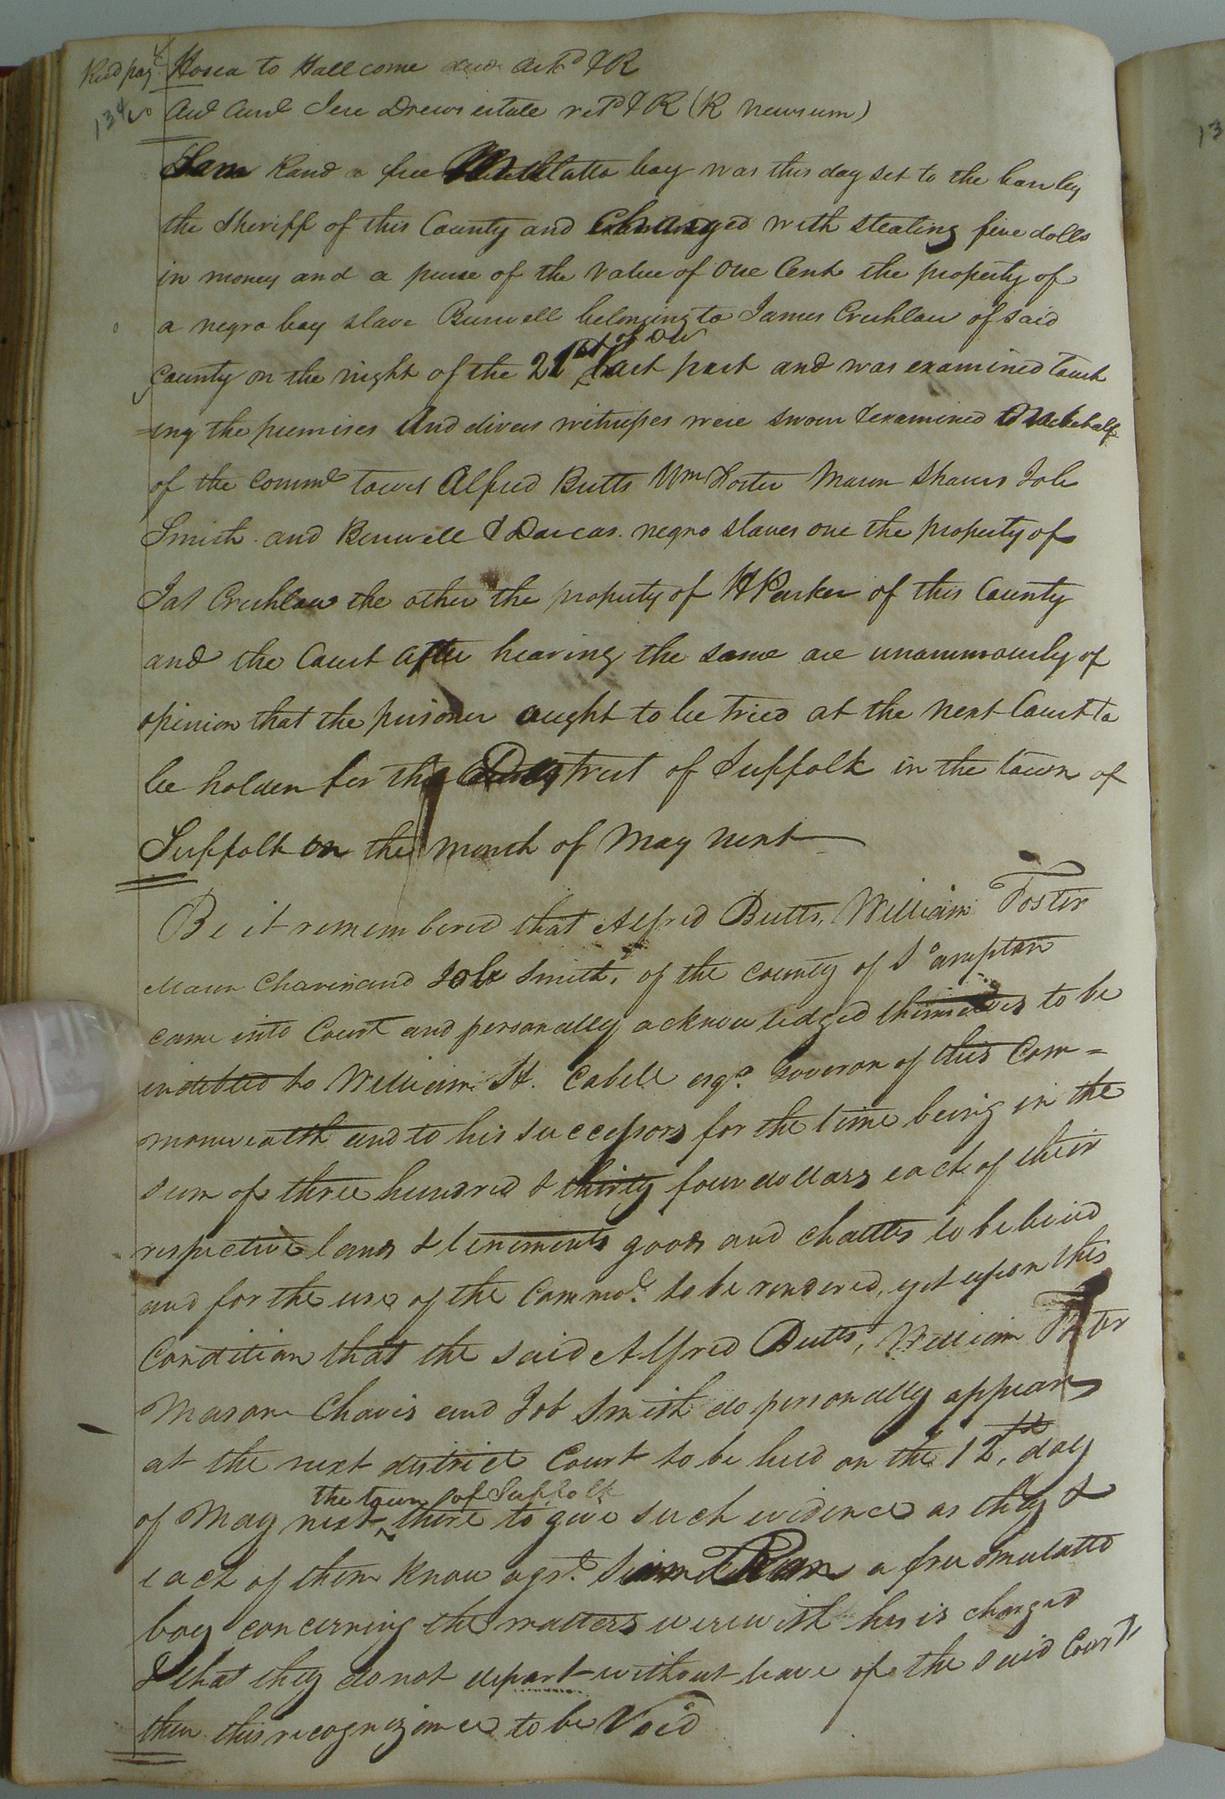 Hosea to Hall come ackd & R
Aud Acct Jere Drews estate retd & R (R Newsum)
134
Sam Rand a free Mullatto boy was this day set to the bar by
the Sheriff of this County and Charged with stealing five dolls
in money and a purse of the value of One Cent the property of
a negro boy slave Burwell belonging to James Crichlow of said
County on the night of the 21st last past and was examined touch
=ing the premises And divers witnesses were sworn & examined behalf
of the Commth towit Alfred Butts Wm Foster Mason Shavis Job
Smith and Burwell & Darcas negro slaves one the property of
Jas Crichlow the other the property of H Parker of this County
and the Court after hearing the same are unanimously of
opinion that the prisoner ought to be tried at the next Court to
be holden for the District of Suffolk in the town of
Suffolk on the month of May next
Be it remembered that Alfred Butts, William Foster
Mason Chavis and Job Smith, of the county of So ampton
came into Court and personally acknowledged themselves to be
indebted to William H. Cabell esqr. Goveron of this Com=
monweath and to his successors for the time being in the
sum of three hundred & thirty four dollars each of their
respective lands & tenements goods and chattles to be levied
and for the use of the Commod. to be rendered, yet upon this
Condition that the said Alfred Butts, William Foster
Mason Chavis and Job Smith do personally appear
at the next district Court to be held on the 12th. day
the town of Suffolk
of May next ^ there to give such evidence as they &
each of them know agst. Sam Ran a free mulatto
boy concerning the matters werewith he is charged
& that they do not depart without leave of the said Court
then this recognizance to be Void